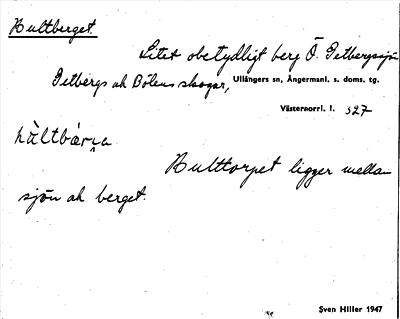 Hultberget.
Litet obetydligt berg Ö. Getbergssjön
Getbergs ock Bölens skogar, Ullångers sn, Ångermanl. s. doms. tg.
Västernorrl. l. 327
Hulttorpet ligger mellan
sjön ock berget.
Sven Hiller 1947